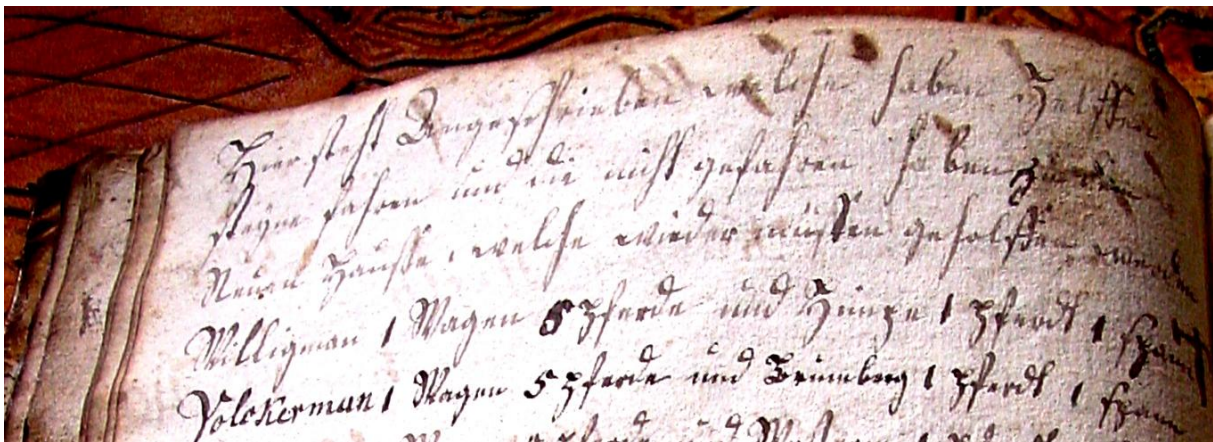 Hier steht Angeschrieben welche haben Helffen
steyne fahren und die nicht gefahren haben zu dem
Neuen Hausse, welche wieder müssten geholffen werden
Willigman 1 Wagen 5 Pferde und Himpe 1 Pferdt 1 span
Volckerman 1 Wagen 5 Pferde und Brumberg 1 Pferdt 1 span